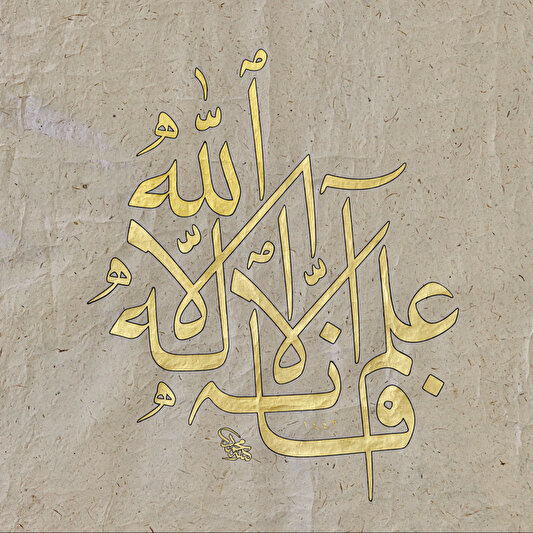 فاعلم أنه لا إله إلا الله